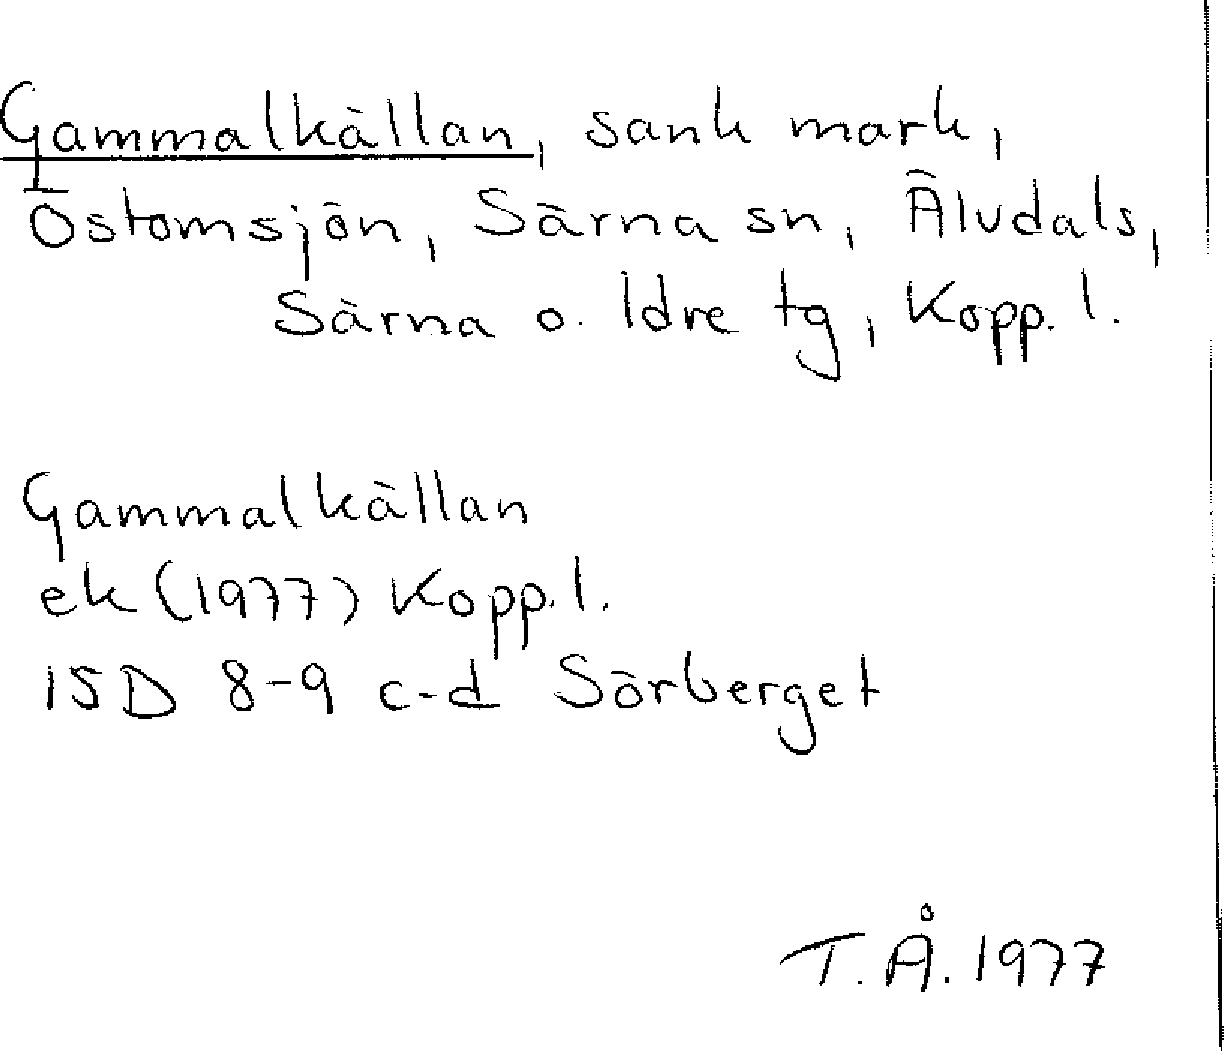 Gammalkällan, sank mark,
Östomsjön, Särna sn, Älvdals,
Särna o. Idre tg, Kopp. l.
Gammalkällan
ek (1977) Kopp. l.
15D 8-9 c-d Sörberget
T.Å. 1977